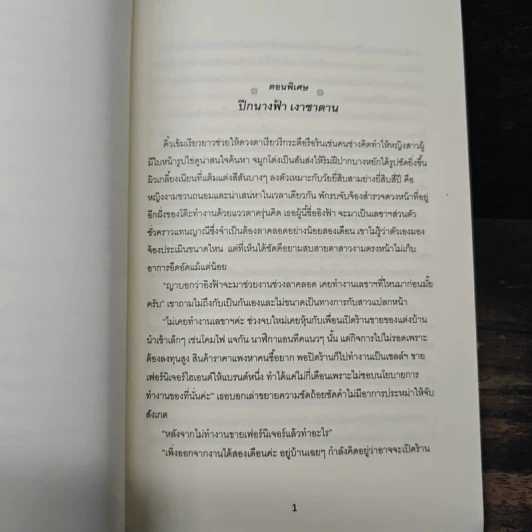 ตอนพิเศษ
ปีกนางฟ้า เงาซาตาน
คิ้วเข้มเรียวยาวช่วยให้ดวงตาเรียวรีกระตือรือร้นเช่นคนช่างคิดทำให้หญิงสาวผู้
มีใบหน้ารูปไข่ดูน่าสนใจค้นหา จมูกโด่งเป็นสันส่งให้ริมฝีปากบางหยักได้รูปชัดยิ่งขึ้น
ผิวเกลี้ยงเนียนที่แต้มแต่งสีสันบางๆ ลงตัวเหมาะกับวัยยี่สิบสามย่างยี่สิบสี่ปี คือ
หญิงงามชวนถนอมและน่าเสน่หาในเวลาเดียวกัน พักรบจับจ้องสำรวจดวงหน้าที่อยู่
อีกฝั่งของโต๊ะทำงานด้วยแววตาครุ่นคิด เธอผู้นี้ชื่ออิงฟ้า จะมาเป็นเลขาฯส่วนตัว
ชั่วคราวแทนญาณีซึ่งจำเป็นต้องลาคลอดอย่างน้อยสองเดือน เขาไม่รู้ว่าตัวเองมอง
จ้องประเมินขนาดไหน แต่ที่เห็นได้ชัดคือยามสบสายตาสาวงามตรงหน้าไม่เก็บ
อาการอึดอัดแม้แต่น้อย
“ญาบอกว่าอิงฟ้าจะมาช่วยงานช่วงลาคลอด เคยทำงานเลขาฯที่ไหนมาก่อนมั้ย
ครับ” เขาถามไม่ถึงกับเป็นกันเองและไม่ขนาดเป็นทางการกับสาวแปลกหน้า
“ไม่เคยทำงานเลขาฯค่ะ ช่วงจบใหม่เคยหุ้นกับเพื่อนเปิดร้านขายของแต่งบ้าน
นำเข้าเล็กๆ เช่นโคมไฟ แจกัน นาฬิกาแอนทีคแนวๆ นั้น แต่กิจการไปไม่รอดเพราะ
ต้องลงทุนสูง สินค้าราคาแพงหาคนซื้อยาก พอปิดร้านก็ไปทำงานเป็นเซลล์ฯ ขาย
เฟอร์นิเจอร์ไฮเอนด์ให้แบรนด์หนึ่ง ทำได้แค่ไม่กี่เดือนเพราะไม่ชอบนโยบายการ
ทำงานของที่นั่นค่ะ” เธอบอกเล่าขยายความชัดถ้อยชัดคำไม่มีอาการประหม่าให้จับ
สังเกต
“หลังจากไม่ทำงานขายเฟอร์นิเจอร์แล้วทำอะไร”
“เพิ่งออกจากงานได้สองเดือนค่ะ อยู่บ้านเฉยๆ กำลังคิดอยู่ว่าอาจจะเปิดร้าน
1